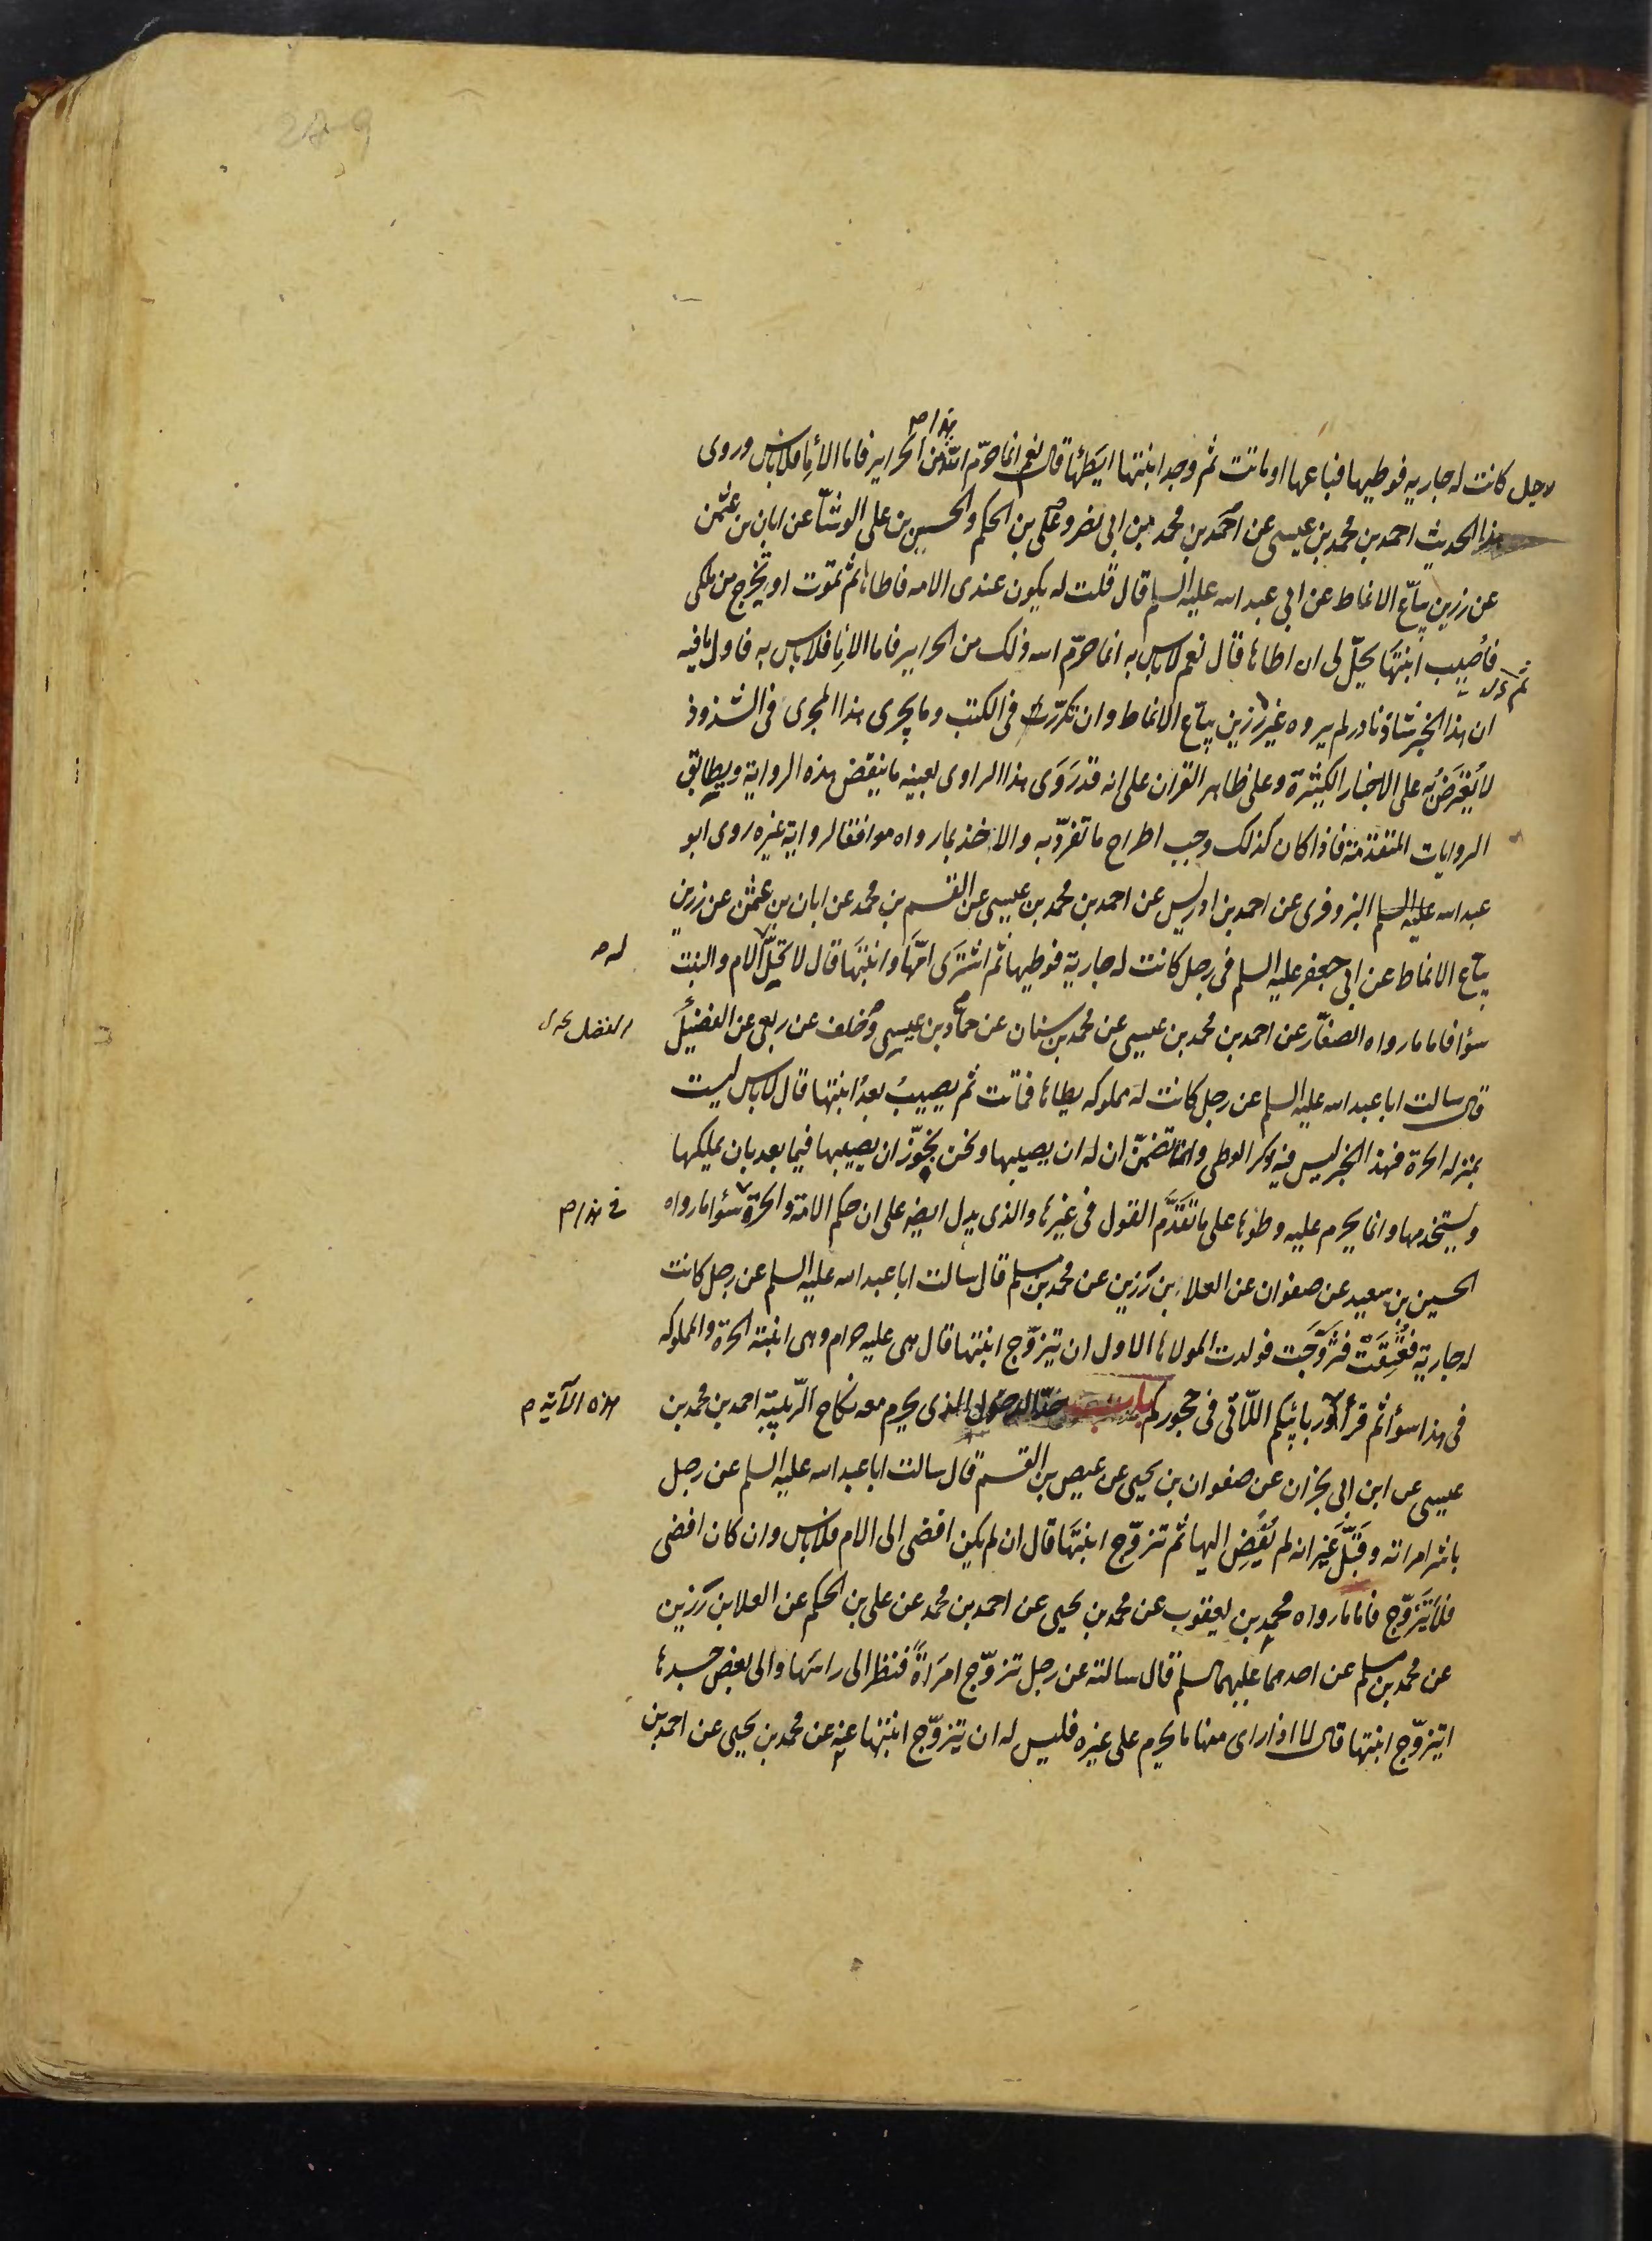 رجل كانت له جاريه فوطيها فباعها او ماتت ثم وجد ابنتها ايطئها قال نعم انما حرّم الله من الحراير فاما الأيما فلا باس وروى
هذا م
هذا الحديث احمد بن محمد بن عيسى عن احمد بن محمد بن ابى نصر وعلى بن الحكم والحسين بن على الوشّا عن ابان بن عثمن
عن رزين بيّاع الانماط عن ابى عبد الله عليه السلم قال قلت له يكون عندى الامه فاطاها ثم تموت او تخرج من ملكى
فاصيب ابنتها يحلّ لى ان اطاها قال نعم لا باس به انما حرّم الله ذلك من الحراير فاما الاما فلا باس به فاول ما فيه
ان هذا الخبر شاذ نادر لم يروه غير رزين بيّاع الانماط وان تكرّرت فى الكتب وما يجرى هذا المجرى فى الشذوذ
لا يُعترضُ به على الاخبار الكثيرة وعلى ظاهر القران على انه قد رَوَى هذا الراوى بعينه ما ينقض هذه الرواية ويطابق
الروايات المتقدّمة فاذا كان كذلك وجب اطراح ما تفرّد به والاخذ بما رواه موافقا لرواية غيره روى ابو
عبد الله عليه السلم البزوفرى عن احمد بن ادريس عن احمد بن محمد بن عيسى عن القسم بن محمد عن ابان بن عثمن عن رزين
بيّاع الانماط عن ابى جعفر عليه السلم فى رجل كانت له جارية فوطيها ثم اشترى امّها وابنتها قال لا تحلّ الام والبنت
له م
سوا فاما ما رواه الصفّار عن احمد بن محمد بن عيسى عن محمد بن سنان عن حمّاد بن عيسى وخلف عن ربعى عن الفضيل
قال سالت ابا عبد الله عليه السلم عن رجل كانت له مملوكه يطاها فماتت ثم يصيبُ بعدُ ابنتها قال لا باس ليست
بمنزله الحرة فهذا الخبر ليس فيه ذكر الوطى وانما تضمّن ان له ان يصيبها ونحن نجوّز ان يصيبها فيما بعد بان يملكها
ويستخدمها وانما يحرم عليه وطؤها على ما تقدّم القول فى غيرها والذى يدل ايضا على ان حكم الامة والحرة سوا ما رواه
فى هذا م
الحسين بن سعيد عن صفوان عن العلا بن رزين عن محمد بن مسلم قال سالت ابا عبد الله عليه السلم عن رجل كانت
له جارية فعُتِقَت فتزوّجَت فولدت ألمولاها الاول ان يتزوّج ابنتها قال هى عليه حرام وهى ابنته الحرة والمملوكه
فى هذا سوأ ثم قرأ وربائبكم اللّاتى فى حجوركم باب حدّ الدخول الذى يحرم معه نكاح الرّبيبة احمد بن محمد بن
هذه الآية م
عيسى عن ابن ابى نجران عن صفوان بن يحيى عن عيص بن القسم قال سالت ابا عبد الله عليه السلم عن رجل
باشر امراته وقبّل غير انه لم يُفض اليها ثم تزوّج ابنتها قال ان لم يكن افضى الى الام فلا باس وان كان افضى
فلا يتزوّج فاما ما رواه محمد بن يعقوب عن محمد بن يحيى عن احمد بن محمد عن على بن الحكم عن العلا بن رزين
عن محمد بن مسلم عن احدهما عليهما السلم قال سالته عن رجل تزوّج امرَاةً فنظر الى راسها والى بعض جسدها
ايتزوّج ابنتها قال لا اذا راى منها ما يحرم على غيره فليس له ان يتزوّج ابنتها عنه عن محمد بن يحيى عن احمد بن